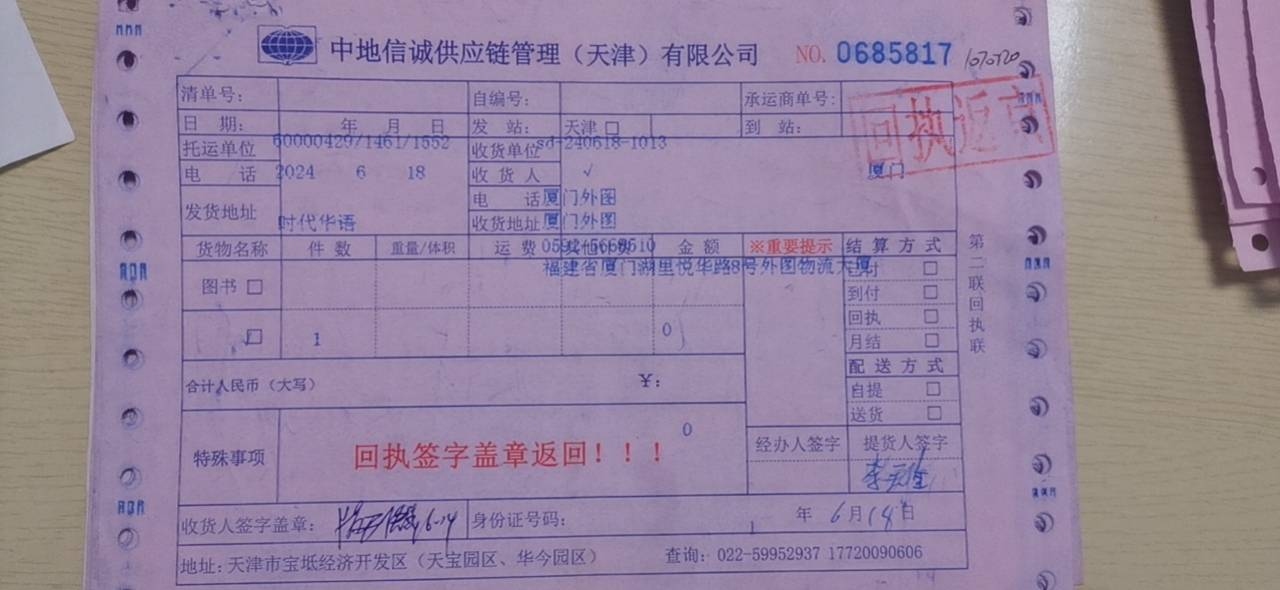 中地信诚供应链管理（天津）有限公司 NO. 0685817
回执返京
清单号： 自编号： 承运商单号：
日 期： 年 月 日 发 站： 天津 □ 到 站：
60000429/1461/1552 sd-240618-1013
托运单位 收货单位
电 话 2024 6 18 收 货 人 √ 厦门
电 话 厦门外图
发货地址 时代华语 收货地址 厦门外图
货物名称 件 数 重量/体积 运 费 其他计费 金 额 ※重要提示 结 算 方 式
福建省厦门湖里悦华路8号外图物流大厦
图书 □ 到付 □
回执 □
□ 1 0 月结 □
配 送 方 式
合计人民币（大写） ¥： 自提 □
送货 □
0
特殊事项 回执签字盖章返回！！！ 经办人签字 提货人签字
收货人签字盖章： 6-14 身份证号码： 年 6月14日
地址：天津市宝坻经济开发区（天宝园区、华今园区） 查询：022-59952937 17720090606
第二联回执联